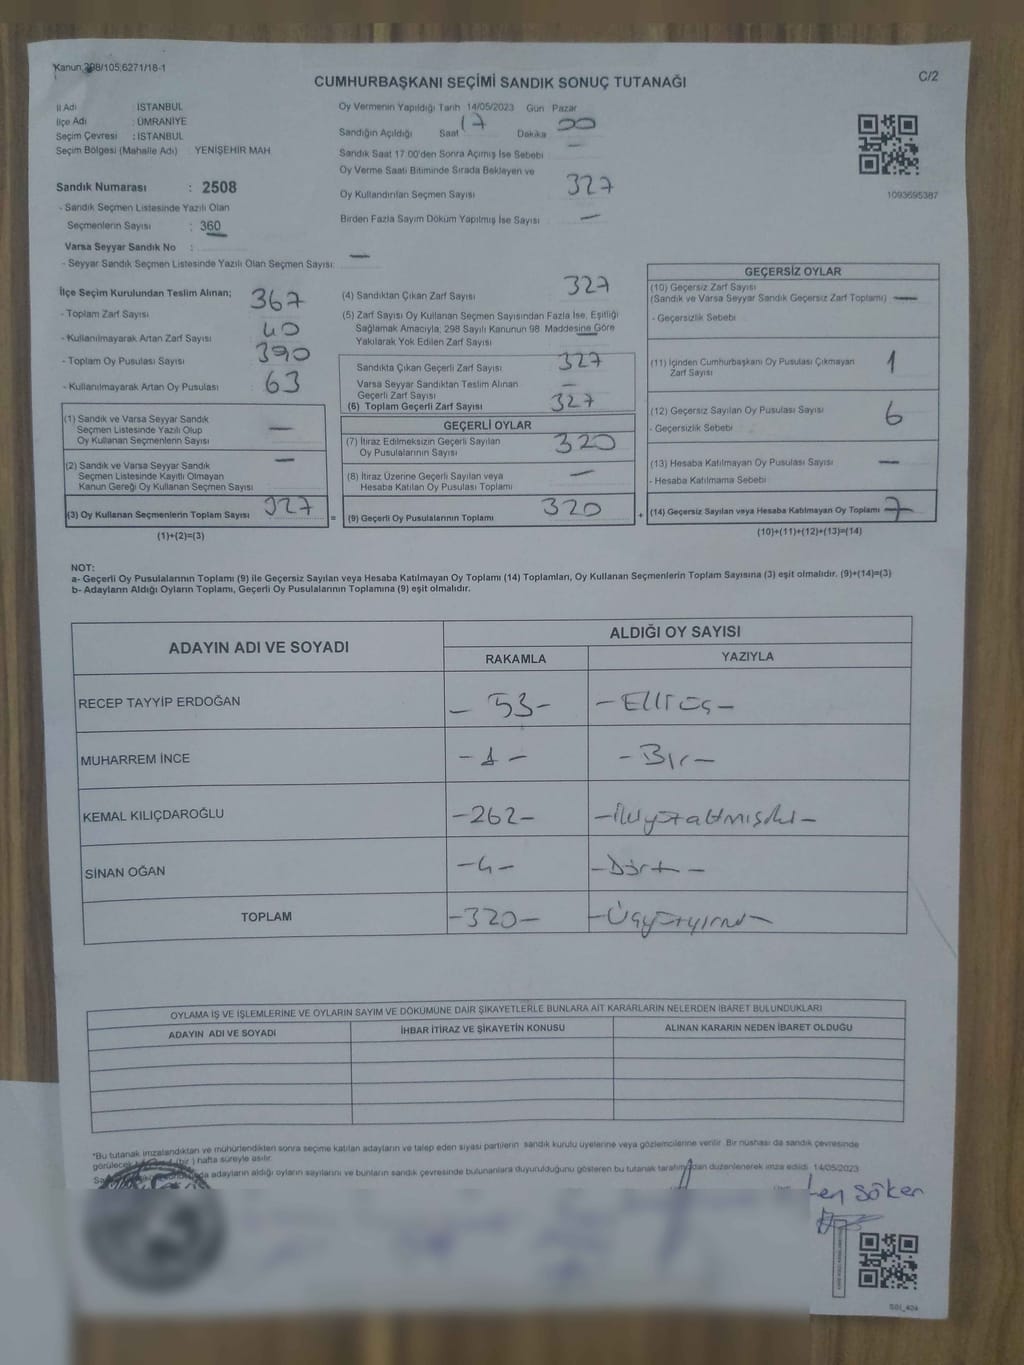 Kanun:298/105,6271/18-1
C/2
CUMHURBAŞKANI SEÇİMİ SANDIK SONUÇ TUTANAĞI
İl Adı : İSTANBUL
İlçe Adı : ÜMRANİYE
Seçim Çevresi : İSTANBUL
Seçim Bölgesi (Mahalle Adı) : YENİŞEHİR MAH.
Sandık Numarası : 2508
- Sandık Seçmen Listesinde Yazılı Olan
Seçmenlerin Sayısı : 360
Varsa Seyyar Sandık No :
- Seyyar Sandık Seçmen Listesinde Yazılı Olan Seçmen Sayısı: —
Oy Vermenin Yapıldığı Tarih 14/05/2023 Gün Pazar
Sandığın Açıldığı Saat 17 Dakika 00
Sandık Saat 17.00'den Sonra Açımış İse Sebebi —
Oy Verme Saati Bitiminde Sırada Bekleyen ve
Oy Kullandırılan Seçmen Sayısı 327
Birden Fazla Sayım Döküm Yapılmış İse Sayısı —
1093695387
İlçe Seçim Kurulundan Teslim Alınan;
- Toplam Zarf Sayısı 367
- Kullanılmayarak Artan Zarf Sayısı 40
- Toplam Oy Pusulası Sayısı 390
- Kullanılmayarak Artan Oy Pusulası 63
(1) Sandık ve Varsa Seyyar Sandık
Seçmen Listesinde Yazılı Olup
Oy Kullanan Seçmenlerin Sayısı —
(2) Sandık ve Varsa Seyyar Sandık
Seçmen Listesinde Kayıtlı Olmayan
Kanun Gereği Oy Kullanan Seçmen Sayısı —
(3) Oy Kullanan Seçmenlerin Toplam Sayısı 327 =
(1)+(2)=(3)
(4) Sandıktan Çıkan Zarf Sayısı 327
(5) Zarf Sayısı Oy Kullanan Seçmen Sayısından Fazla İse, Eşitliği
Sağlamak Amacıyla, 298 Sayılı Kanunun 98. Maddesine Göre
Yakılarak Yok Edilen Zarf Sayısı —
Sandıkta Çıkan Geçerli Zarf Sayısı 327
Varsa Seyyar Sandıktan Teslim Alınan
Geçerli Zarf Sayısı —
(6) Toplam Geçerli Zarf Sayısı 327
GEÇERLİ OYLAR
(7) İtiraz Edilmeksizin Geçerli Sayılan
Oy Pusulalarının Sayısı 320
(8) İtiraz Üzerine Geçerli Sayılan veya
Hesaba Katılan Oy Pusulası Toplamı —
(9) Geçerli Oy Pusulalarının Toplamı 320 +
GEÇERSİZ OYLAR
(10) Geçersiz Zarf Sayısı
(Sandık ve Varsa Seyyar Sandık Geçersiz Zarf Toplamı) —
- Geçersizlik Sebebi
(11) İçinden Cumhurbaşkanı Oy Pusulası Çıkmayan
Zarf Sayısı 1
(12) Geçersiz Sayılan Oy Pusulası Sayısı 6
- Geçersizlik Sebebi
(13) Hesaba Katılmayan Oy Pusulası Sayısı —
- Hesaba Katılmama Sebebi
(14) Geçersiz Sayılan veya Hesaba Katılmayan Oy Toplamı 7
(10)+(11)+(12)+(13)=(14)
NOT:
a- Geçerli Oy Pusulalarının Toplamı (9) ile Geçersiz Sayılan veya Hesaba Katılmayan Oy Toplamı (14) Toplamları, Oy Kullanan Seçmenlerin Toplam Sayısına (3) eşit olmalıdır. (9)+(14)=(3)
b- Adayların Aldığı Oyların Toplamı, Geçerli Oy Pusulalarının Toplamına (9) eşit olmalıdır.
ADAYIN ADI VE SOYADI ALDIĞI OY SAYISI
RAKAMLA YAZIYLA
RECEP TAYYİP ERDOĞAN -53- -Elliüç-
MUHARREM İNCE -1- -Bir-
KEMAL KILIÇDAROĞLU -262- -ikiyüzaltmışiki-
SİNAN OĞAN -4- -Dört-
TOPLAM -320- -Üçyüzyirmi-
OYLAMA İŞ VE İŞLEMLERİNE VE OYLARIN SAYIM VE DÖKÜMÜNE DAİR ŞİKAYETLERLE BUNLARA AİT KARARLARIN NELERDEN İBARET BULUNDUKLARI
ADAYIN ADI VE SOYADI İHBAR İTİRAZ VE ŞİKAYETİN KONUSU ALINAN KARARIN NEDEN İBARET OLDUĞU
*Bu tutanak imzalandıktan ve mühürlendikten sonra seçime katılan adayların ve talep eden siyasi partilerin sandık kurulu üyelerine veya gözlemcilerine verilir. Bir nüshası da sandık çevresinde
görülecek (bir) hafta süreyle asılır.
adayların aldığı oyların sayılarını ve bunların sandık çevresinde bulunanlara duyurulduğunu gösteren bu tutanak tarafımızdan düzenlenerek imza edildi. 14/05/2023
Söker